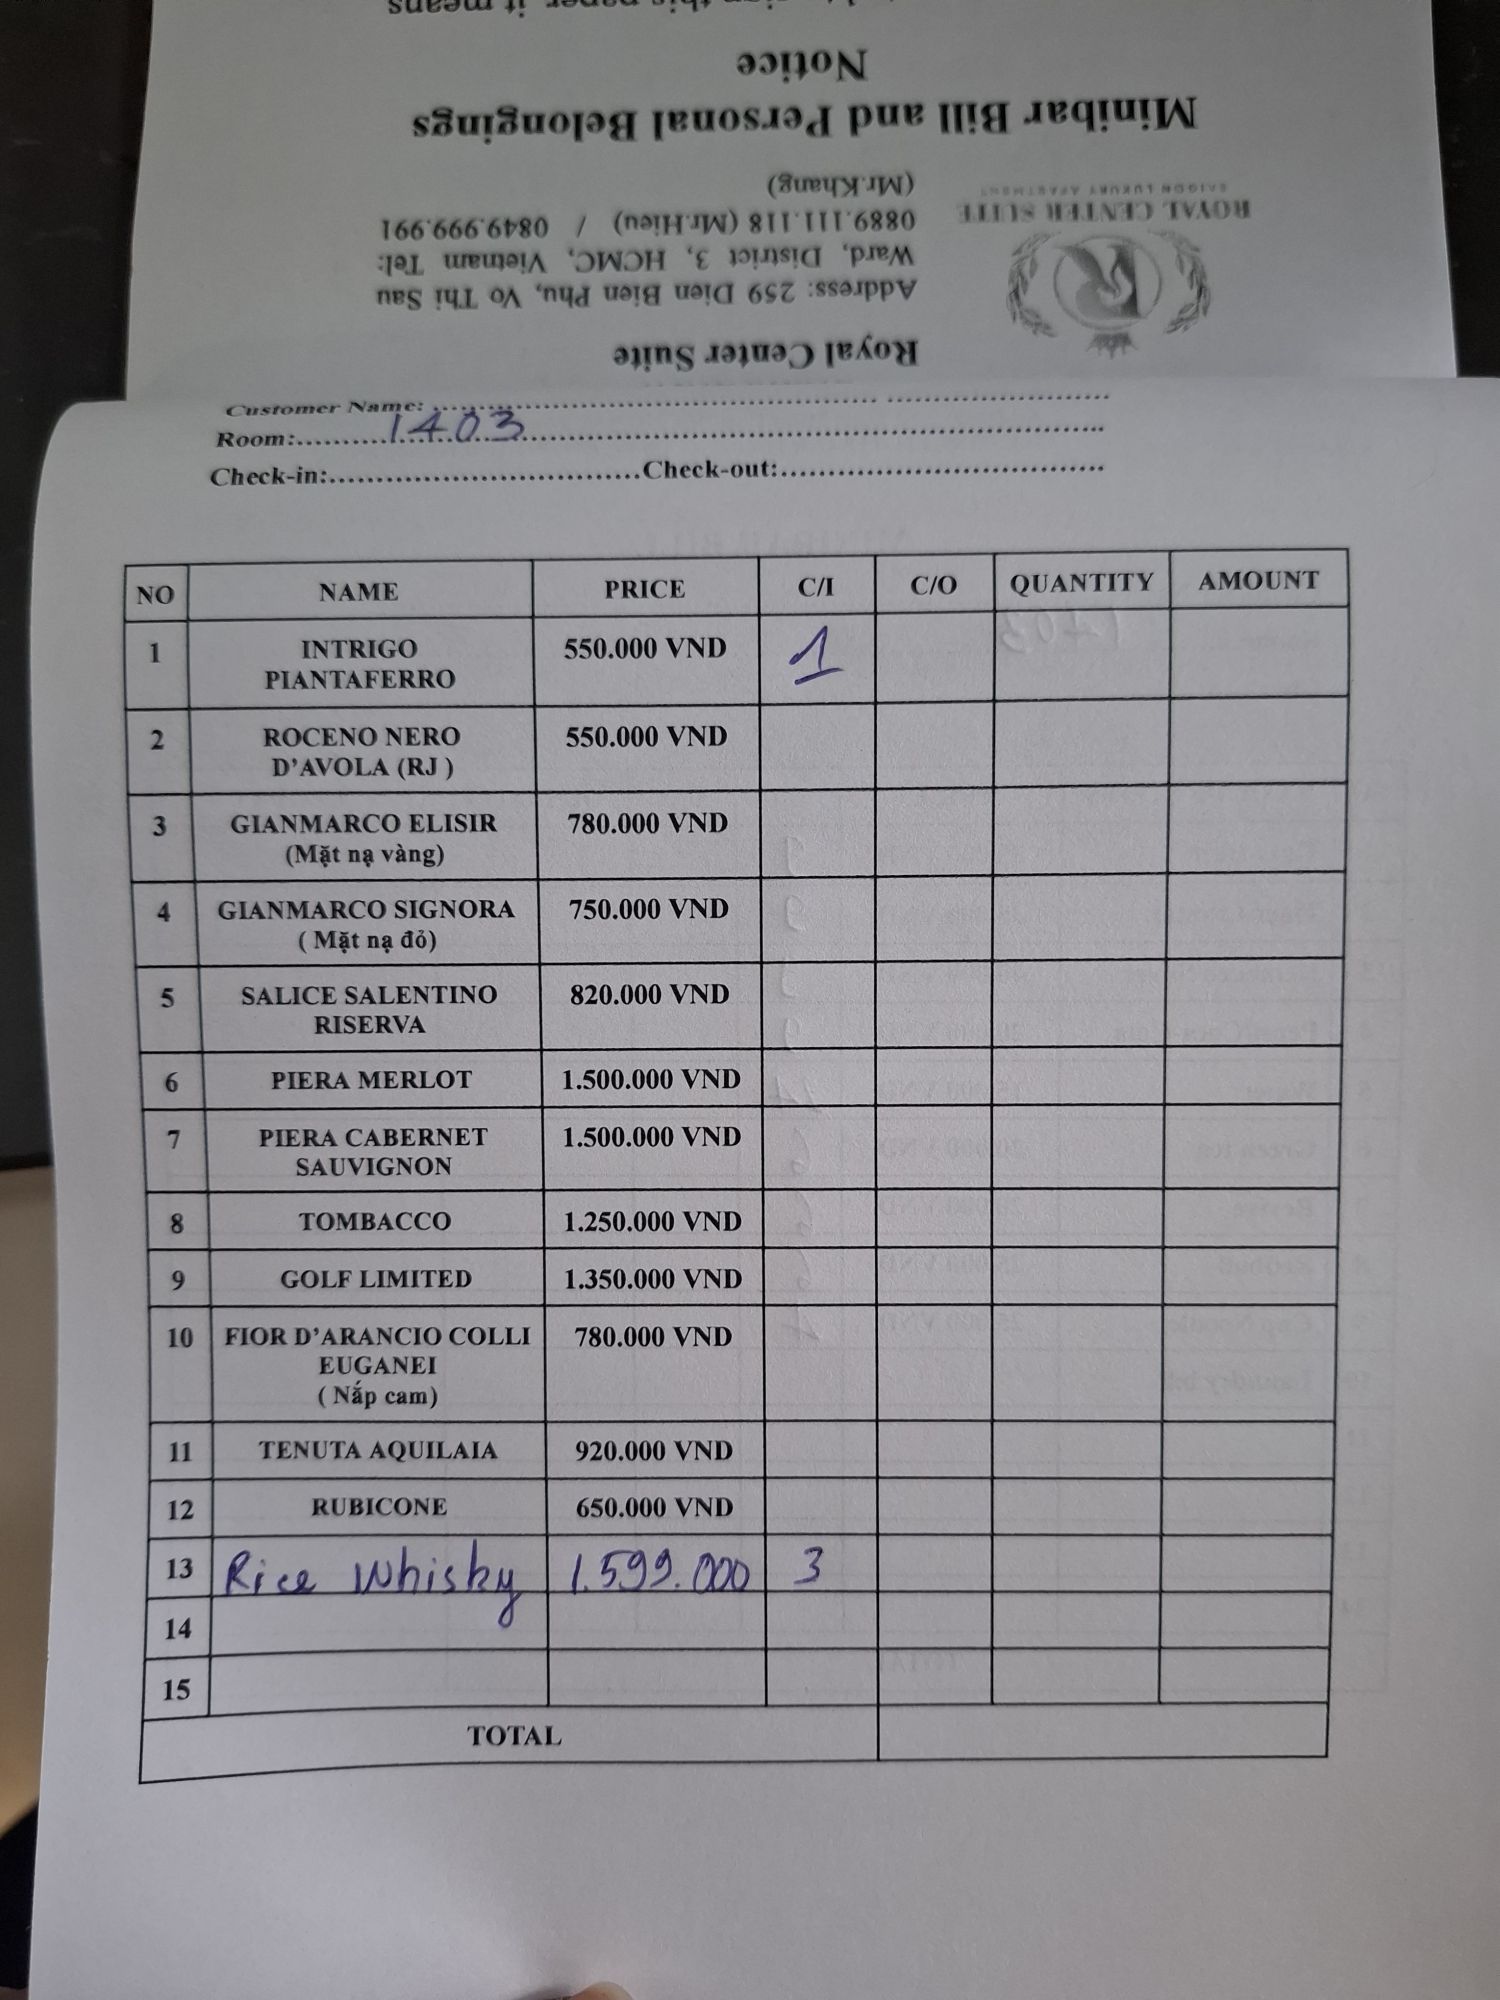 sign this paper, it means
Notice
Minibar Bill and Personal Belongings
(Mr.Khang)
0889.111.118 (Mr.Hieu) / 0849.999.991
Ward, District 3, HCMC, Vietnam Tel:
Address: 259 Dien Bien Phu, Vo Thi Sau
Royal Center Suite
ROYAL CENTER SUITE
SAIGON LUXURY APARTMENT
Customer Name:
Room: 1403
Check-in: Check-out:
NO NAME PRICE C/I C/O QUANTITY AMOUNT
1 INTRIGO 550.000 VND 1
PIANTAFERRO
2 ROCENO NERO 550.000 VND
D'AVOLA (RJ )
3 GIANMARCO ELISIR 780.000 VND
(Mặt nạ vàng)
4 GIANMARCO SIGNORA 750.000 VND
( Mặt nạ đỏ)
5 SALICE SALENTINO 820.000 VND
RISERVA
6 PIERA MERLOT 1.500.000 VND
7 PIERA CABERNET 1.500.000 VND
SAUVIGNON
8 TOMBACCO 1.250.000 VND
9 GOLF LIMITED 1.350.000 VND
10 FIOR D'ARANCIO COLLI 780.000 VND
EUGANEI
( Nắp cam)
11 TENUTA AQUILAIA 920.000 VND
12 RUBICONE 650.000 VND
13 Rice Whisky 1.599.000 3
14
15
TOTAL